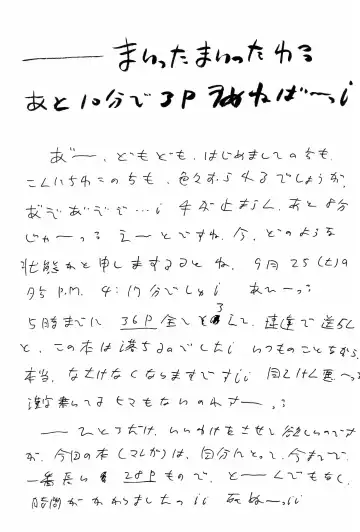 ── まいったまいったわっ
あと10分で3P うめねばーっ!
あ゛ー、どもども、はじめましての方も、
こんにちわこの方も、色々おられるでしょうが、
あぞあぞで…! 手が止まらん、あと8分
じゃーっ え〜とですね、今、どのような
状態かと申しますとね、9月25(土)の
P.M. 4:17分でしょ! あひーっ
5時までに 36P 全て 速達で送らん
と、この本は落ちるのでした! いつものことながら、
本当、なさけなくなりますです!!
漢字書いてる ヒマもないのねー
── ひとつだけ、いいわけをさせて欲しいのです
が、今回の本(マンガ)は、自分にとって、今まで
一番長い 28Pもので、と〜んでもなく、
時間がかかりましたっ!! 死ぬーっ!!